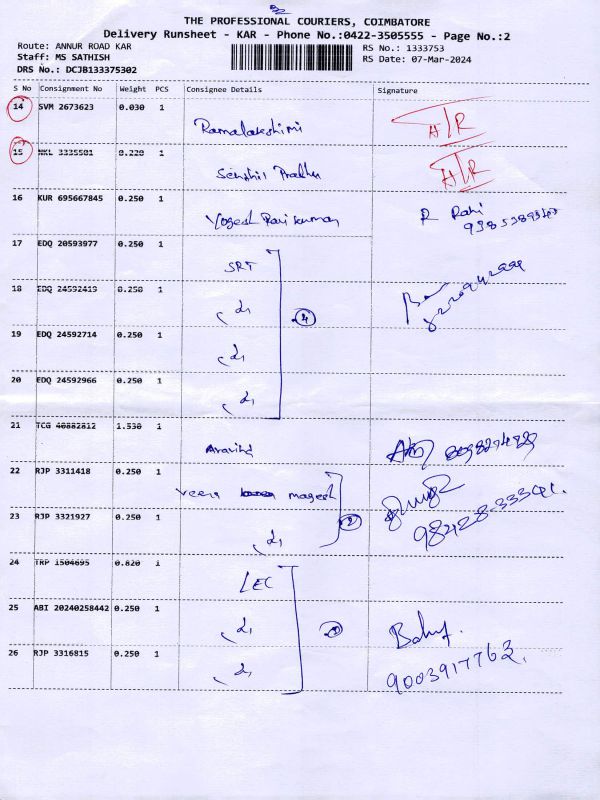 THE PROFESSIONAL COURIERS, COIMBATORE
Delivery Runsheet - KAR - Phone No.:0422-3505555 - Page No.:2
Route: ANNUR ROAD KAR
RS No.: 1333753
Staff: MS SATHISH
RS Date: 07-Mar-2024
DRS No.: DCJB133375302
S No Consignment No Weight PCS Consignee Details Signature
14 SVM 2673623 0.030 1
Ramalakshimi A/R
15 NKL 3335501 0.220 1
Senthil Prabhu A/R
16 KUR 695667845 0.250 1
Yogesh Ravi kumar R Rani
17 EDQ 20593977 0.250 1
SRT
18 EDQ 24592419 0.250 1
4
19 EDQ 24592714 0.250 1
20 EDQ 24592966 0.250 1
21 TCG 40882812 1.530 1
Aravind
22 RJP 3311418 0.250 1
Veera magesh
23 RJP 3321927 0.250 1
2
98428-33341.
24 TRP 1504695 0.820 1
LEC
25 ABI 20240258442 0.250 1
26 RJP 3316815 0.250 1
9003917762.